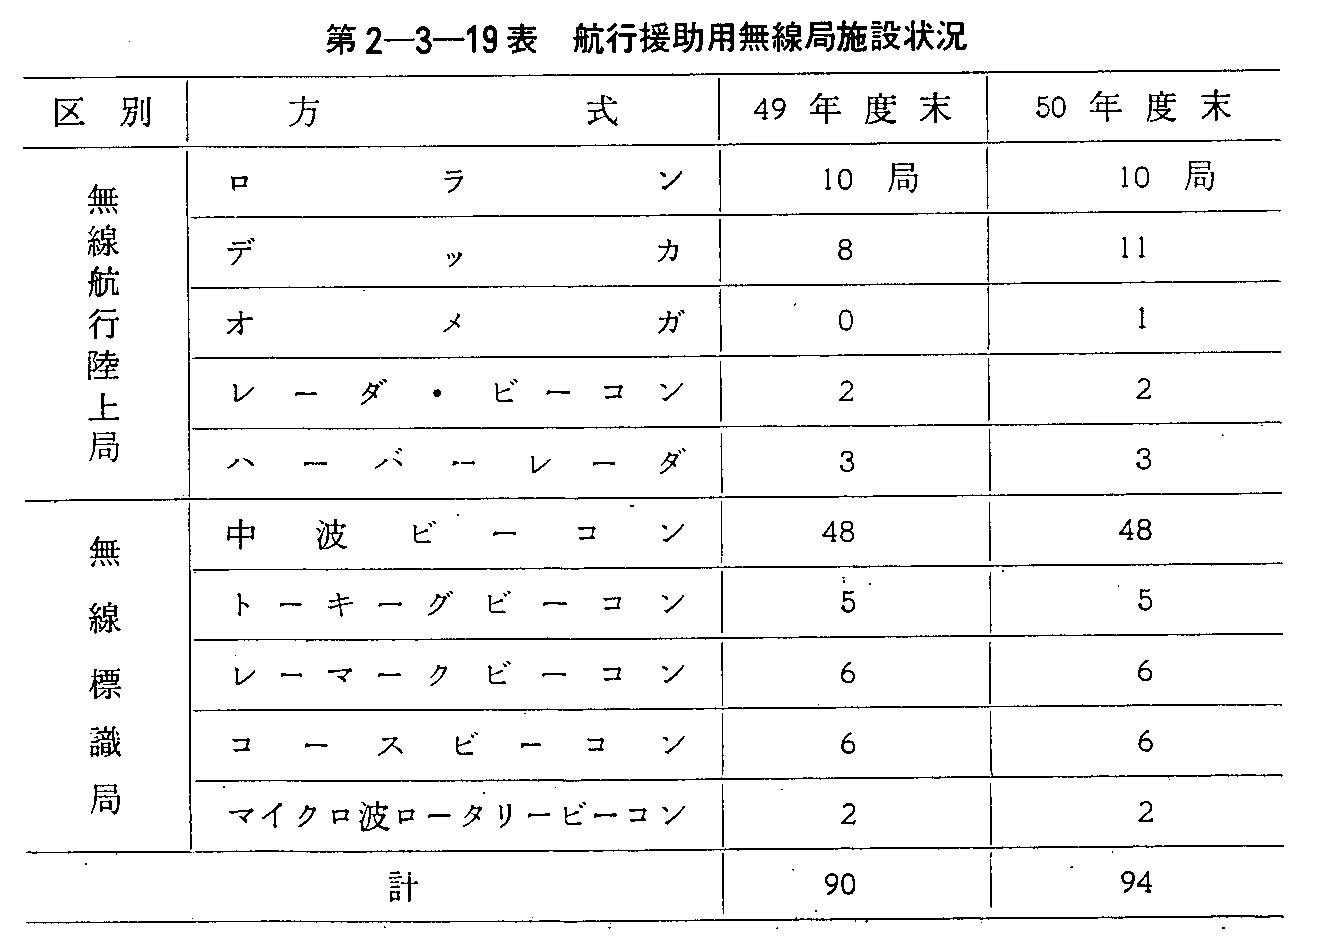 第2―3―19表 航行援助用無線局施設状況
区別 方式 49年度末 50年度末
無線航行陸上局
ロラン 10局 10局
デッカ 8 11
オメガ 0 1
レーダ・ビーコン 2 2
ハーバーレーダ 3 3
無線標識局
中波ビーコン 48 48
トーキーグビーコン 5 5
レーマークビーコン 6 6
コースビーコン 6 6
マイクロ波ロータリービーコン 2 2
計 90 94